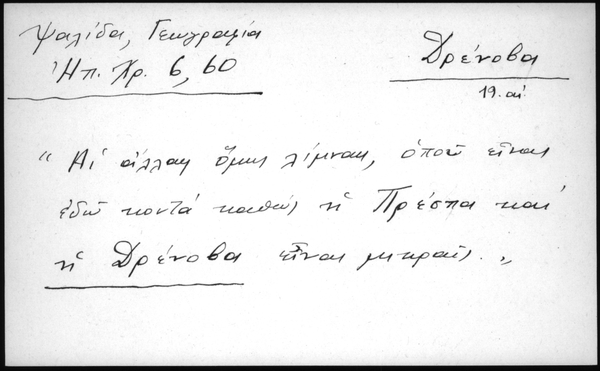 Ψαλίδα, Γεωγραφία
Ἠπ. Χρ. 6, 60
Δρένοβα
19. αἰ.
“ Αἱ ἄλλαι ὅμως λίμναι, ὁποῦ εἶναι
ἐδῶ κοντά καθώς ἡ Πρέσπα καί
ἡ Δρένοβα εἶναι μικραίς. „